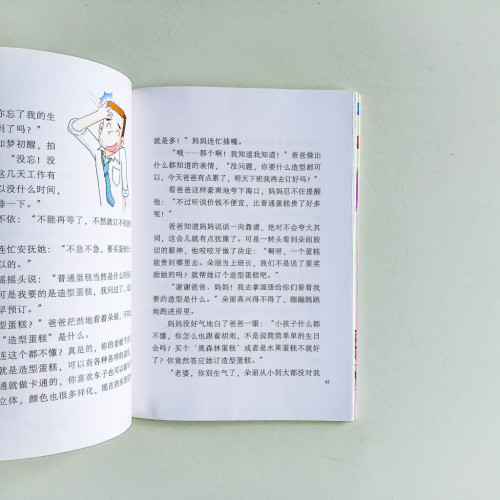 你忘了我的生
到了吗？”
如梦初醒，拍
“没忘！没
这几天工作有
以没什么时间，
排一下。”
不依：“不能再等了，不然就订不
连忙安抚她：“不急不急，要买蛋糕
以的。”
摇摇头说：“普通蛋糕当然是什么
可是我要的是造型蛋糕，我问过了，
早预订。”
型蛋糕？”爸爸茫然地看着朵丽，不
“造型蛋糕”是什么。
连这个都不懂？真是的，你的老板
就是造型蛋糕，可以有各种各样的造
通就做卡通的，你喜欢车子也可以
立体，颜色也很多样化，现在的
就是多！”妈妈连忙插嘴。
“哦……那个啊！我知道我知道！”爸爸做出
什么都知道的表情，“没问题，你要什么造型都可
以，今天爸爸有点累了，明天下班我再去订好吗？”
看爸爸这样豪爽地夸下海口，妈妈忍不住提醒
他：“不过听说价钱不便宜，比普通蛋糕贵了好多
呢！”
爸爸知道妈妈说话一向靠谱，绝对不会夸大其
词，这会儿就有点犹豫了。可是一转头看到朵丽殷
切的眼神，他咬咬牙做了决定：“啊呀，一个蛋糕
能贵到哪里去。朵丽当上班长，我们不是说了要奖
给她的吗？就帮她订个造型蛋糕吧。”
“谢谢爸爸、妈妈！我去拿画册给你们看看我
要的造型是什么。”朵丽高兴得不得了，蹦蹦跳跳
地跑进房里。
妈妈没好气地白了爸爸一眼：“小孩子什么都
不懂，你怎么也跟着胡闹，不是说简简单单的生日
会吗？买个‘黑森林蛋糕’或者是水果蛋糕不就好
了？你竟然答应她订造型蛋糕。”
“老婆，你别生气了，朵丽从小到大都没对我
45